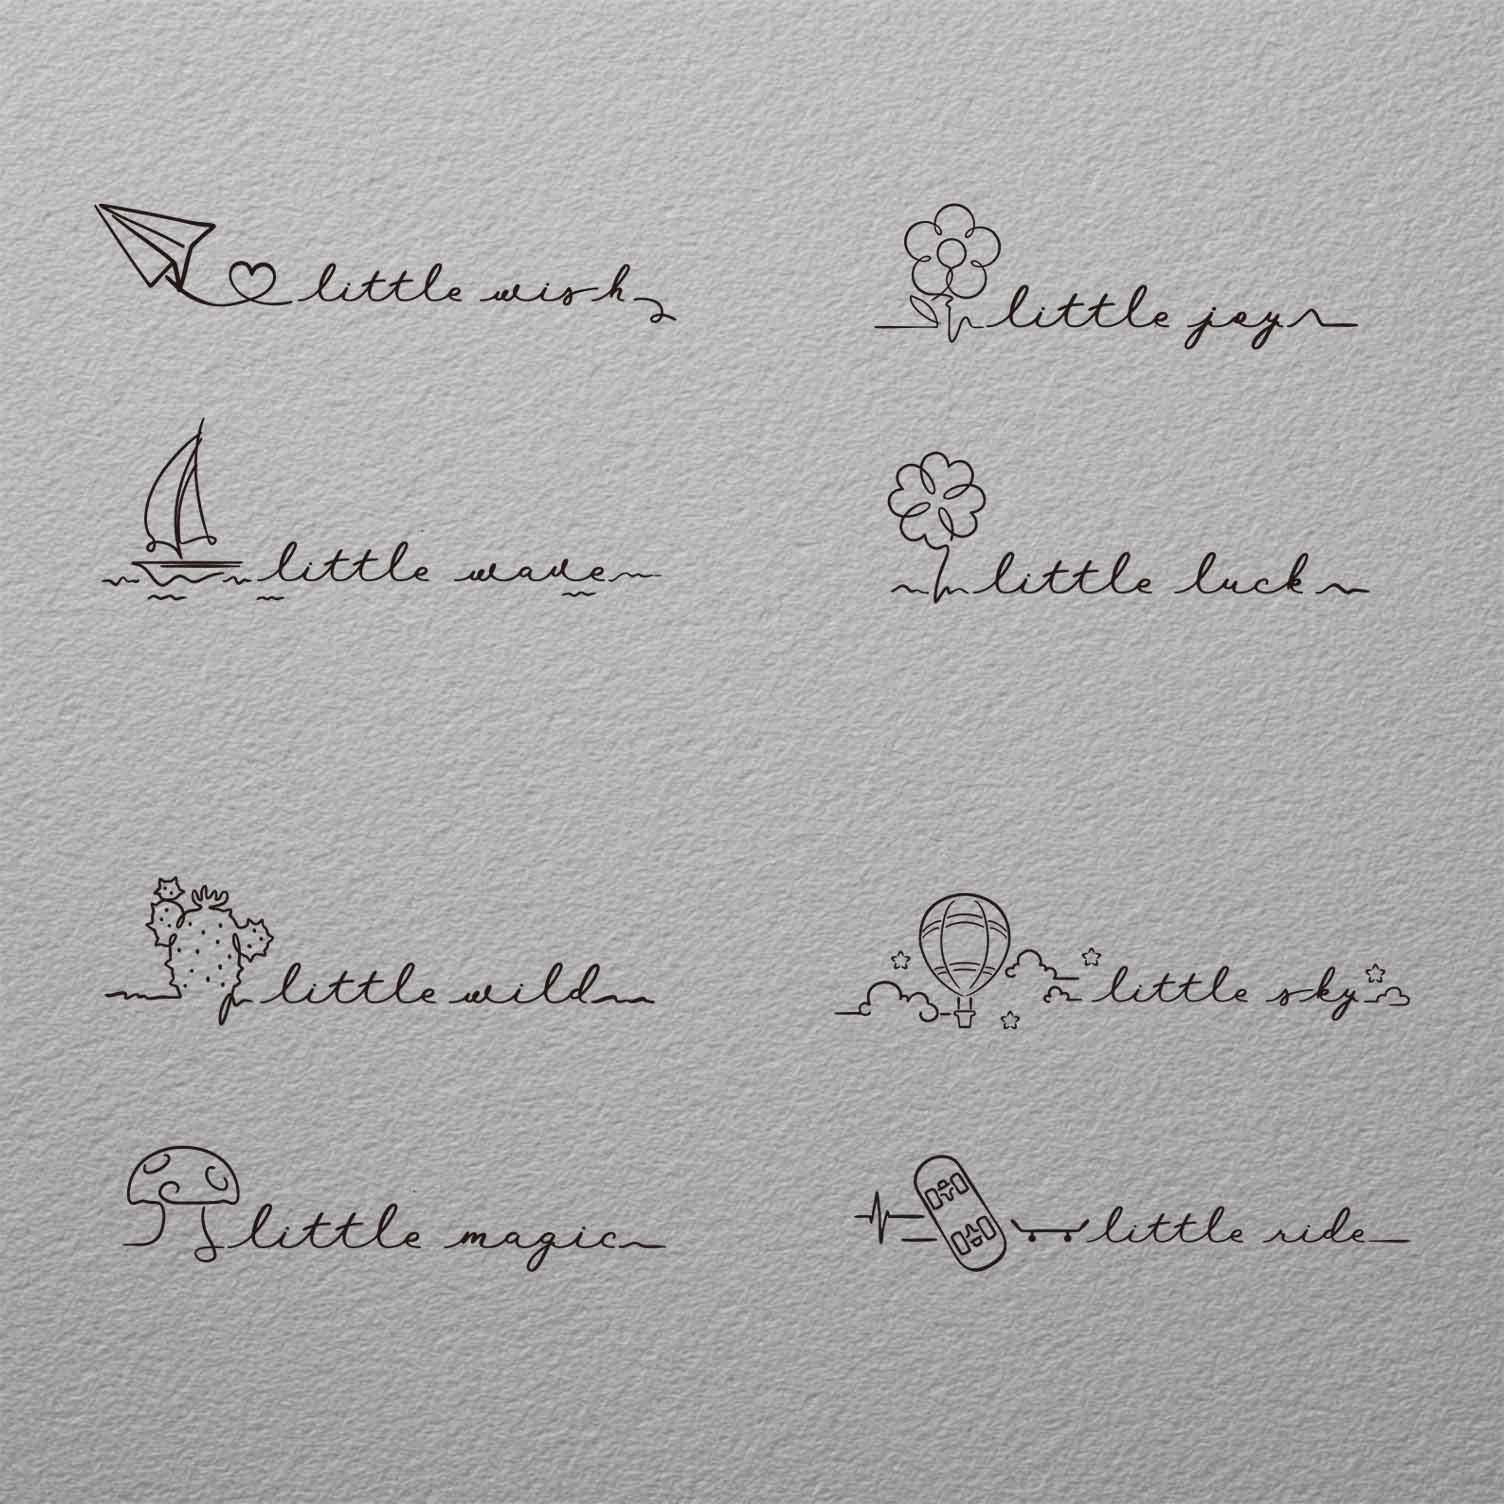 little wish
little joy
little wave
little luck
little wild
little sky
little magic
little ride